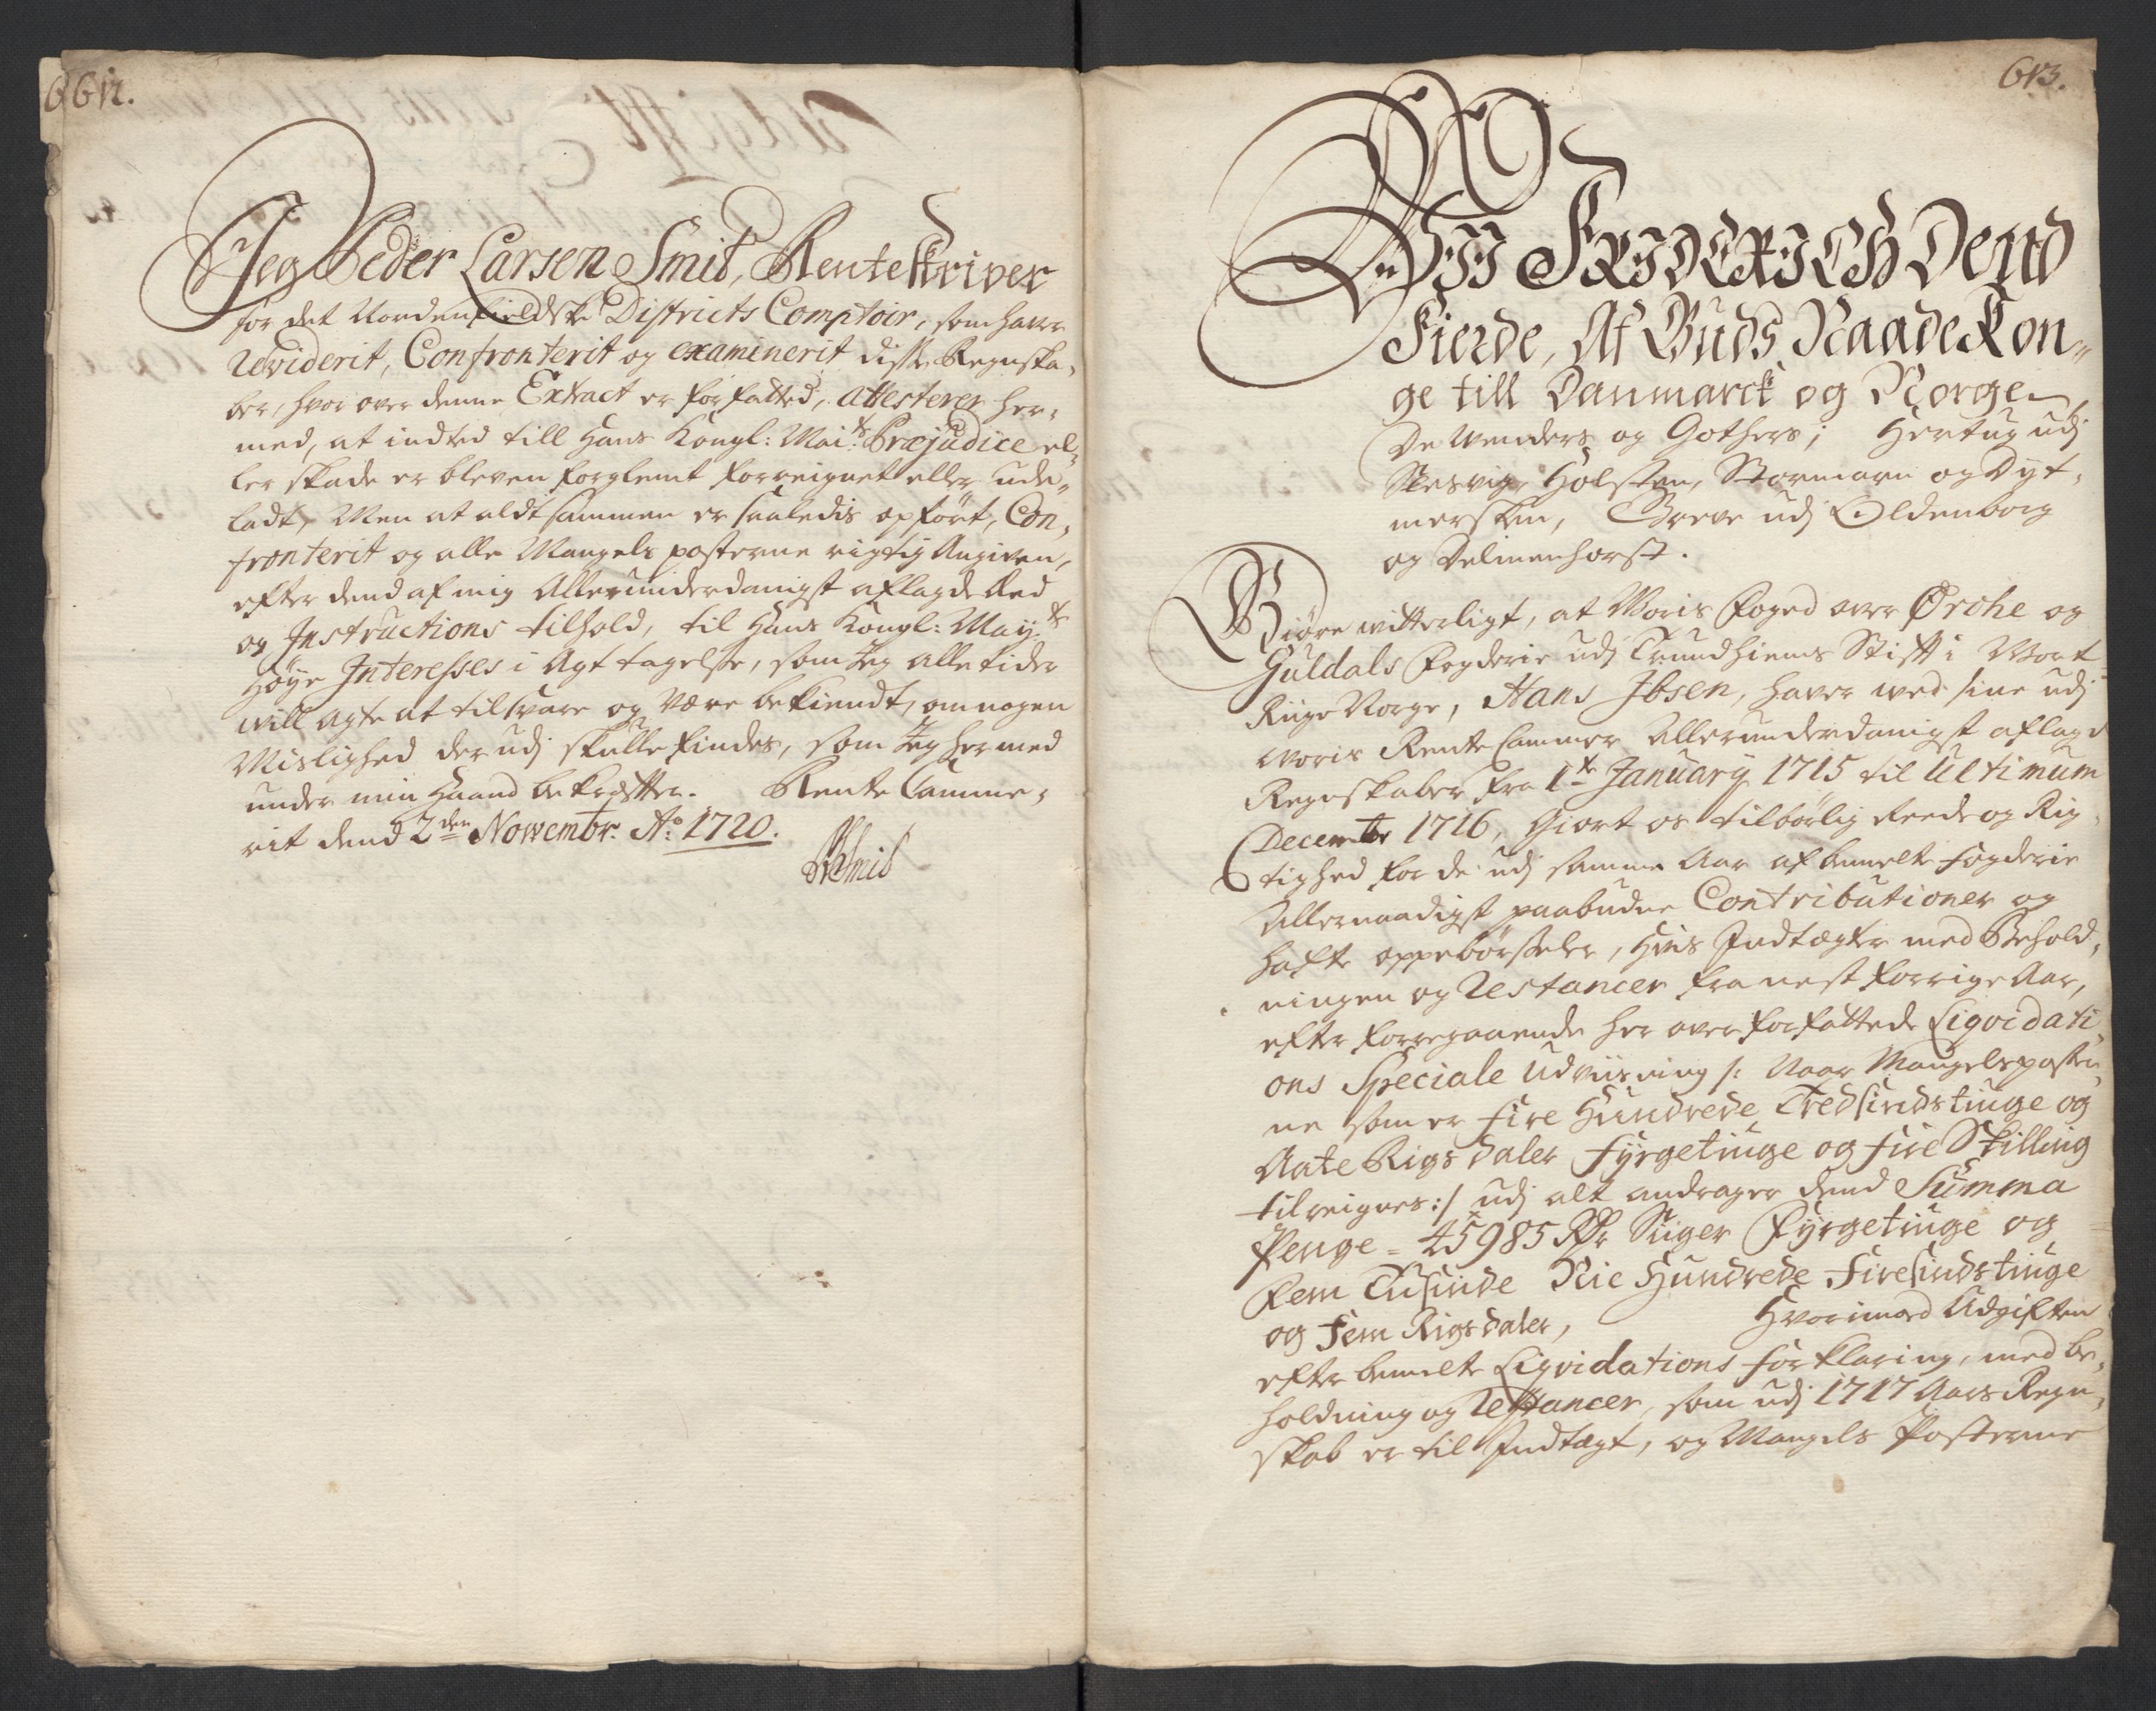 612.
Jeg Peder Larsen Smit, Renteskriver
for det Nordenfieldske Districts Comptoir, som haver
Reviderit, Confronterit og examinerit disse Regnska,
ber, hvor over denne Extract er forfatted, attesterer her,
med, at indted till Hans Kongl: Mai:ts Præjudice el,
ler skade er bleven forglemt forreignet eller ude,
ladt, Men at aldt sammen er saaledis opført, Con,
fronterit og alle Mangels posterne rigtig Angiven,
efter dend af mig Allerunderdanigst aflagde Eed
og Instructions tilhold, til Hans Kongl: May:ts
Høye Interesses i Agt tagelse, som Jeg alle tider
will agte at tilsvare og være bekiendt, om nogen
Mislighed der udj skulle findes, som Jeg hermed
under min Haand bekræfter. Rente Camme,
rit dend 2den Novembr. A:o 1720.
PLSmit
613.
Wii FRIDERICH Dend
Fierde, Af Guds Naade Kon,
ge till Danmarck og Norge,
De Wenders og Gothers, Hertug udj
Slesvig, Holsten, Stormarn og Dyt,
mersken, Greve udj Oldenborg
og Delmenhorst.
Giøre witterligt, at Woris Foged over Ørche og
Guldals Fogderie udj Trundhiems Stift i Wort
Rige Norge, Hans Ibsen, haver wed sine udj
Woris Rente Cammer Allerunderdanigst aflagde
Regnskaber fra 1te January 1715 til Ultimum
December 1716, Giort os tilbørlig Reede og Rig,
tighed for de udj samme Aar af bemelte Fogderie
Allernaadigst paabudne Contributioner og
hafte oppebørseler, Hvis Indtægter med Behold,
ningen og Restancer fra nest forrige Aar,
efter foregaaende her over forfattede Liqvidati,
ons Speciale Udviisning /: Naar Mangelsposter,
ne som er Fire Hundrede Tredsindstiuge og
Aate Rigsdaler Fyrgetiuge og Fire Skilling
tilreignes :/ udj alt andrager dend Summa
Penge = 45985 Rdr Siiger Fyrgetiuge og
Fem Tusinde Nie Hundrede Firesindstiuge
og Fem Rigsdaler, Hvorimod Udgiften
efter bemelte Liqvidations Forklaring, med be,
holdning og Restancer, som udj 1717 Aars Regn,
skab er til Indtægt, og Mangels Posterne